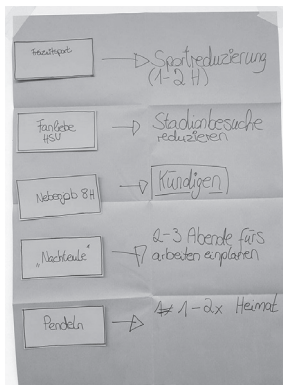 Freizeitsport
Sportreduzierung
(1-2 H)
Fanliebe
HSV
Stadionbesuche
reduzieren
Nebenjob 8H
Kündigen
„Nachteule"
2-3 Abende fürs
arbeiten einplanen
Pendeln
1-2x Heimat